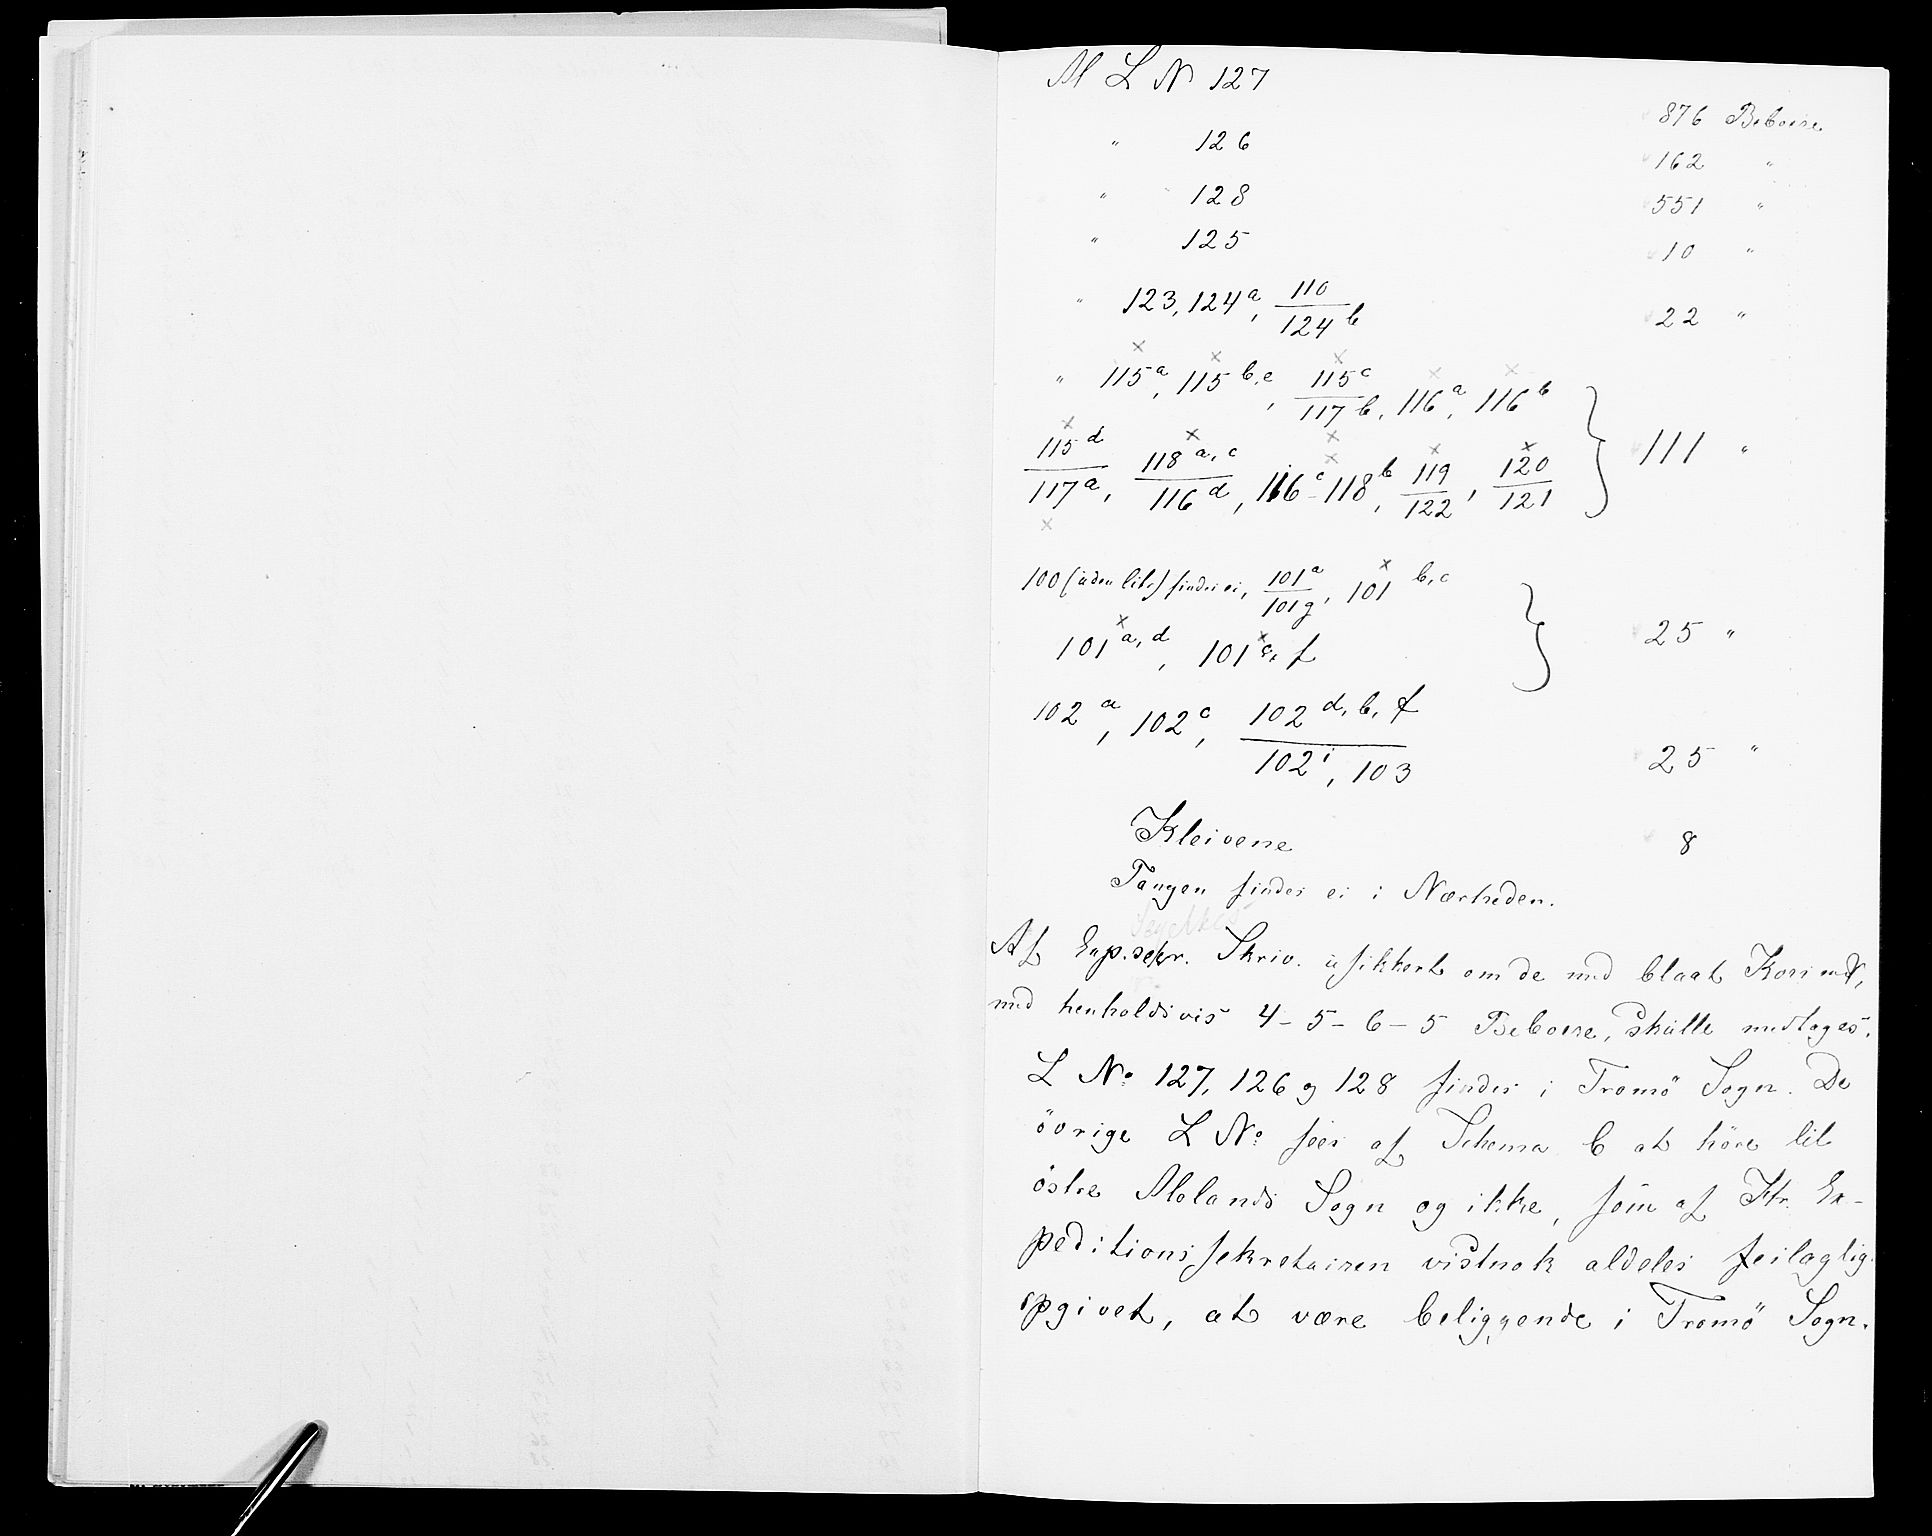 M L N 127
876 Beboere
" 126 162 "
" 128 551 "
" 125 10 "
" 123, 124a, 110/124b 22 "
" 115a, 115b,e, 115c/117b, 116a, 116b
115d/117a, 118a,c/116d, 116c-118b, 119/122, 120/121 } 111 "
100 (uden litr) findes ei, 101a/101g, 101b,c
101a,d, 101e,f } 25 "
102a, 102c, 102d,b,f/102i, 103 25 "
Kleivene 8
Tangen findes ei i Nærheden.
Af Exp.sekr. Skriv. usikkert om de med blaat Kors mkd,
med henholdsvis 4-5-6-5 Beboere, skulle medtages.
L No 127, 126 og 128 findes i Tromö Sogn. De
övrige L No sees af Schema 6 at höre til
östre Molands Sogn og ikke, som af Hr. Ex-
peditionssekretairen vistnok aldeles feilagtig
opgivet, at være beliggende i Tromö Sogn.